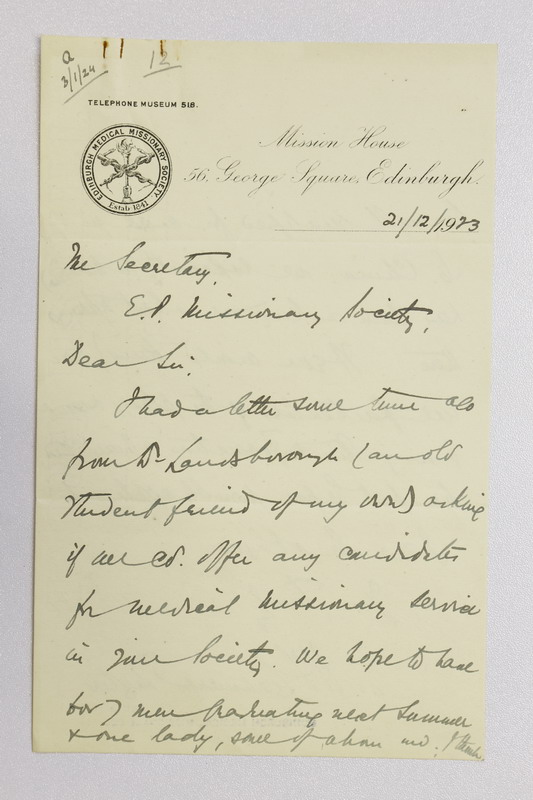 a
3/1/24
12
TELEPHONE MUSEUM 518.
EDINBURGH MEDICAL MISSIONARY SOCIETY
Estab 1841
Mission House
56, George Square, Edinburgh.
21/12/1923
The Secretary,
E.P. Missionary Society,
Dear Sir,
I had a letter some time ago
from Dr Landsborough (an old
student friend of my own) asking
if we cd. offer any candidates
for medical missionary service
in your Society. We hope to have
6 or 7 men graduating next summer
& one lady, some of whom wd. I think,